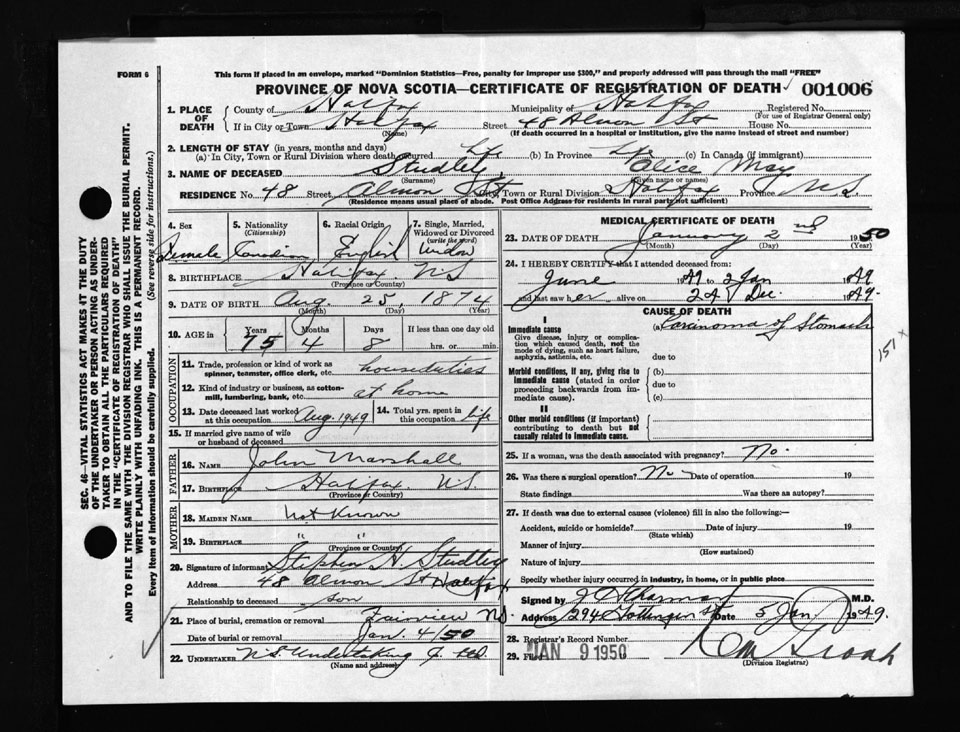 FORM 6
This form if placed in an envelope, marked "Dominion Statistics—Free, penalty for improper use $300," and properly addressed will pass through the mail "FREE"
PROVINCE OF NOVA SCOTIA—CERTIFICATE OF REGISTRATION OF DEATH 001006
1. PLACE OF DEATH
County of Halifax Municipality of Halifax Registered No.
(For use of Registrar General only)
If in City or Town Halifax Street 48 Almon St House No.
(Name) (If death occurred in a hospital or institution, give the name instead of street and number)
2. LENGTH OF STAY (in years, months and days)
(a) In City, Town or Rural Division where death occurred Life (b) In Province Life (c) In Canada (if immigrant)
3. NAME OF DECEASED Studley Alice May
(Surname) (Given name or names)
RESIDENCE No. 48 Street Almon St City, Town or Rural Division Halifax Province N.S.
(Residence means usual place of abode. Post Office Address for residents in rural parts not sufficient)
4. Sex 5. Nationality (Citizenship) 6. Racial Origin 7. Single, Married, Widowed or Divorced (write the word)
Female Canadian English Widow
8. BIRTHPLACE Halifax N.S.
(Province or Country)
9. DATE OF BIRTH Aug. 25, 1874
(Month) (Day) (Year)
10. AGE in Years Months Days If less than one day old
75 4 8 hrs. or min.
OCCUPATION
11. Trade, profession or kind of work as spinner, teamster, office clerk, etc. houseduties
12. Kind of industry or business, as cotton-mill, lumbering, bank, etc. at home
13. Date deceased last worked at this occupation Aug. 1949 14. Total yrs. spent in this occupation life
15. If married give name of wife or husband of deceased
FATHER
16. NAME John Marshall
17. BIRTHPLACE Halifax N.S.
(Province or Country)
MOTHER
18. MAIDEN NAME Not Known
19. BIRTHPLACE " "
(Province or Country)
20. Signature of informant Stephen H. Studley
Address 48 Almon St Halifax
Relationship to deceased son
21. Place of burial, cremation or removal Fairview N.S.
Date of burial or removal Jan. 4/50
22. UNDERTAKER N.S. Undertaking Ltd.
(Name and address)
MEDICAL CERTIFICATE OF DEATH
23. DATE OF DEATH January 2nd 1950
(Month) (Day) (Year)
24. I HEREBY CERTIFY that I attended deceased from:
June 1949 to 2 Jan 1949
and last saw her alive on 24 Dec. 1949.
CAUSE OF DEATH
I
Immediate cause
Give disease, injury or complication which caused death, not the mode of dying, such as heart failure, asphyxia, asthenia, etc.
(a) Carcinoma of Stomach
due to
157 x
Morbid conditions, if any, giving rise to immediate cause (stated in order proceeding backwards from immediate cause).
(b)
due to
(c)
II
Other morbid conditions (if important) contributing to death but not causally related to immediate cause.
25. If a woman, was the death associated with pregnancy? No.
26. Was there a surgical operation? No Date of operation 19
State findings Was there an autopsy?
27. If death was due to external causes (violence) fill in also the following:—
Accident, suicide or homicide? Date of injury 19
(State which)
Manner of injury
(How sustained)
Nature of injury
Specify whether injury occurred in industry, in home, or in public place
Signed by M.D.
Address 294 Gottingen St Date 5 Jan 1949.
28. Registrar's Record Number
29. Filed JAN 9 1950
(Division Registrar)
SEC. 46—VITAL STATISTICS ACT MAKES IT THE DUTY
OF THE UNDERTAKER OR PERSON ACTING AS UNDER-
TAKER TO OBTAIN ALL THE PARTICULARS REQUIRED
IN THE "CERTIFICATE OF REGISTRATION OF DEATH"
AND TO FILE THE SAME WITH THE DIVISION REGISTRAR WHO SHALL ISSUE THE BURIAL PERMIT.
WRITE PLAINLY WITH UNFADING INK. THIS IS A PERMANENT RECORD.
Every item of information should be carefully supplied. (See reverse side for instructions.)